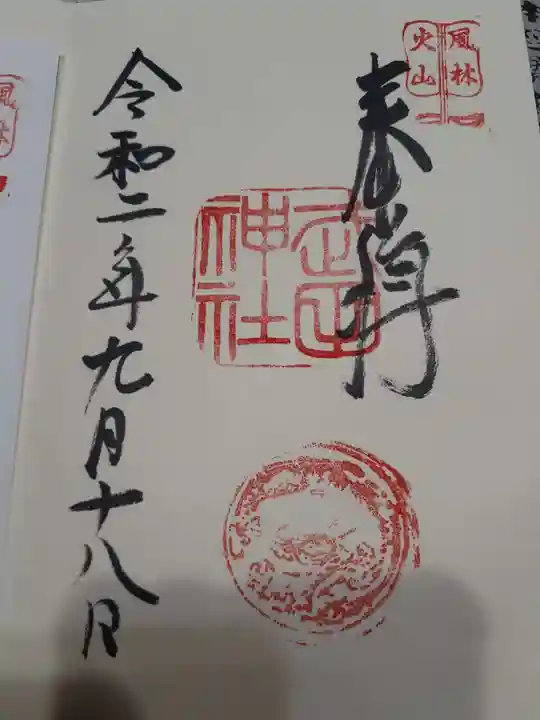 風林
火山
奉拝
武田
神社
令和二年九月十八日